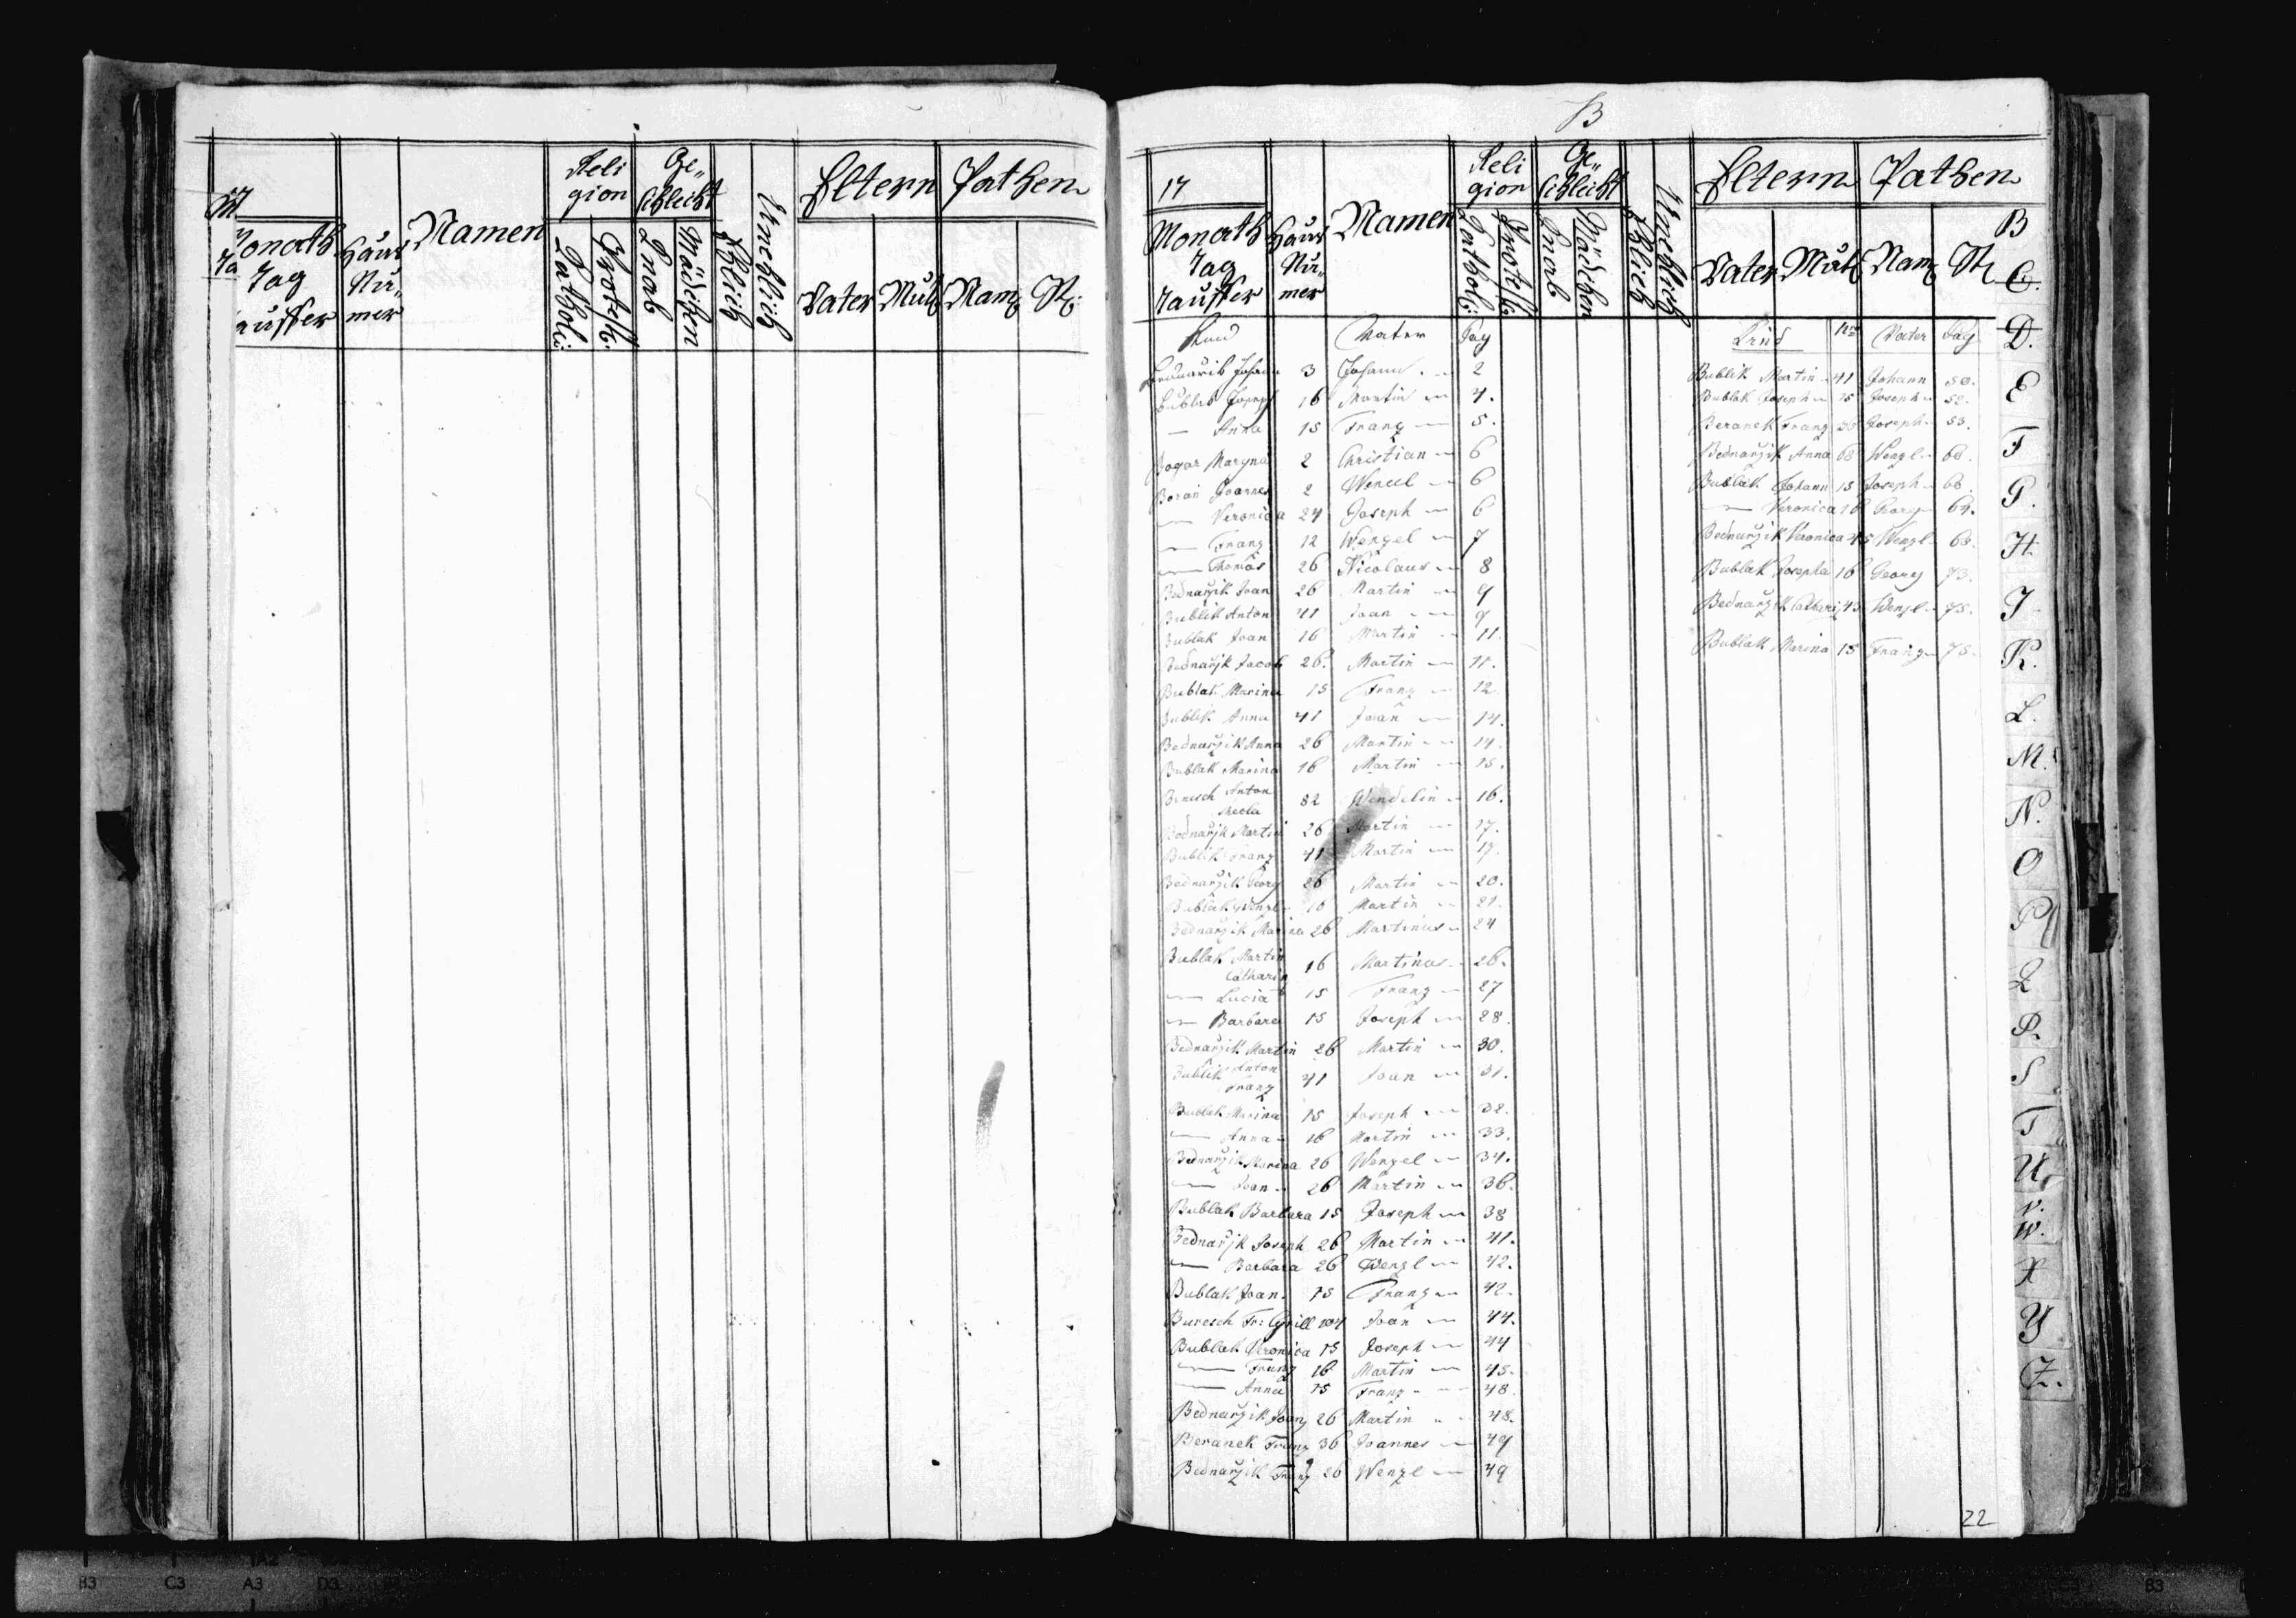 Monath
Tag
Hauss
Nu„
mer
Namen
Reli
gion
Catholi:
Protest:
Ge„
schlecht
Knab
Mädchen
Ehlich
Unehlich
Eltern
Vater Mut
Pathen
Nam St:
B
17
Monath
Tag
Tauffer
Hauss
Nu„
mer
Namen
Reli
gion
Catholi:
Protest:
Ge„
schlecht
Knab
Mädchen
Ehlich
Unehlich
Eltern
Vater Mut
Pathen
Nam St
Kind Vater Pag
3 Johann 2
Bublak Joseph 16 Martin 4.
— Anna 15 Franz 5.
Bogar Maryna 2 Christian 6
Joannes 2 Wencel 6
— Veronica 24 Joseph 6
— Franz 12 Wenzel 7
— Thomas 26 Nicolaus 8
Bednarzik Joan 26 Martin 9
Bublik Anton 41 Joan 9
Bublak Joan 16 Martin 11.
Bednarzik Jacob 26. Martin 11.
Bublak Marina 15 Franz 12
Bublik Anna 41 Joan 14.
Bednarzik Anna 26 Martin 14.
Bublak Marina 16 Martin 15.
Benesch Anton 82 Wendelin 16.
Bednarzik Martin 26 Martin 17.
Bublik Franz 41 Martin 17.
Bednarzik Georg 26 Martin 20.
Bublak Wenzl 16 Martin 21.
Bednarzik Marina 26 Martinus 24
Bublak Martin 16 Martinus 26.
Catharin
— Lucia 15 Franz 27
— Barbara 15 Joseph 28.
Bednarzik Martin 26 Martin 30.
Bublik Anton 41 Joan 31.
Franz
Bublak Marina 15 Joseph 32.
— Anna 16 Martin 33.
Bednarzik Marina 26 Wenzel 34.
— Joan 26 Martin 36.
Bublak Barbara 15 Joseph 38
Bednarzik Joseph 26 Martin 41.
— Barbara 26 Wenzl 42.
Bublak Joan. 15 Franz 42.
Buresch Fr: Cyrill 104 Joan 44.
Bublak Veronica 15 Joseph 44
— Franz 16 Martin 45.
— Anna 15 Franz 48.
Bednarzik 26 Martin 48.
Beranek Franz 36 Joannes 49
Bednarzik Franz 26 Wenzl 49
Kind Nro Vater Pag
Bublik Martin 41 Johann 50.
Bublak Joseph 15 Joseph 52.
Beranek Franz Joseph 53.
Bednarzik Anna 68 Wenzl 60.
Bublak Johann 15 Joseph
— Veronica 16 Georg 64.
Bednarzik Veronica 45 Wenzl 68.
Bublak Josepha 16 Georg 73.
Bednarzik 45 Wenzl 75.
Bublak Marina 15 Franz 75.
B
C.
D.
E
F
G.
H
I
K.
L.
M.
N.
O
P
Q
R.
S
T
U
V.
W.
X
Y
Z.
22
B3
C3
A3
A2
D3
B3